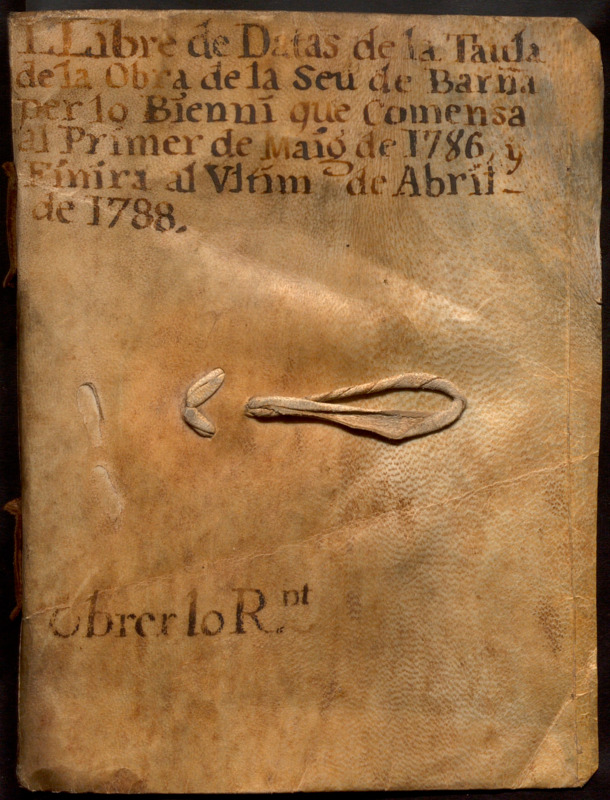 LLibre de Datas de la Taula
de la Obra de la Seu de Barña
per lo Bienni que Comensa
al Primer de Maig de 1786, y
Finira al Vltim de Abril
de 1788.
Obrer lo R.nt